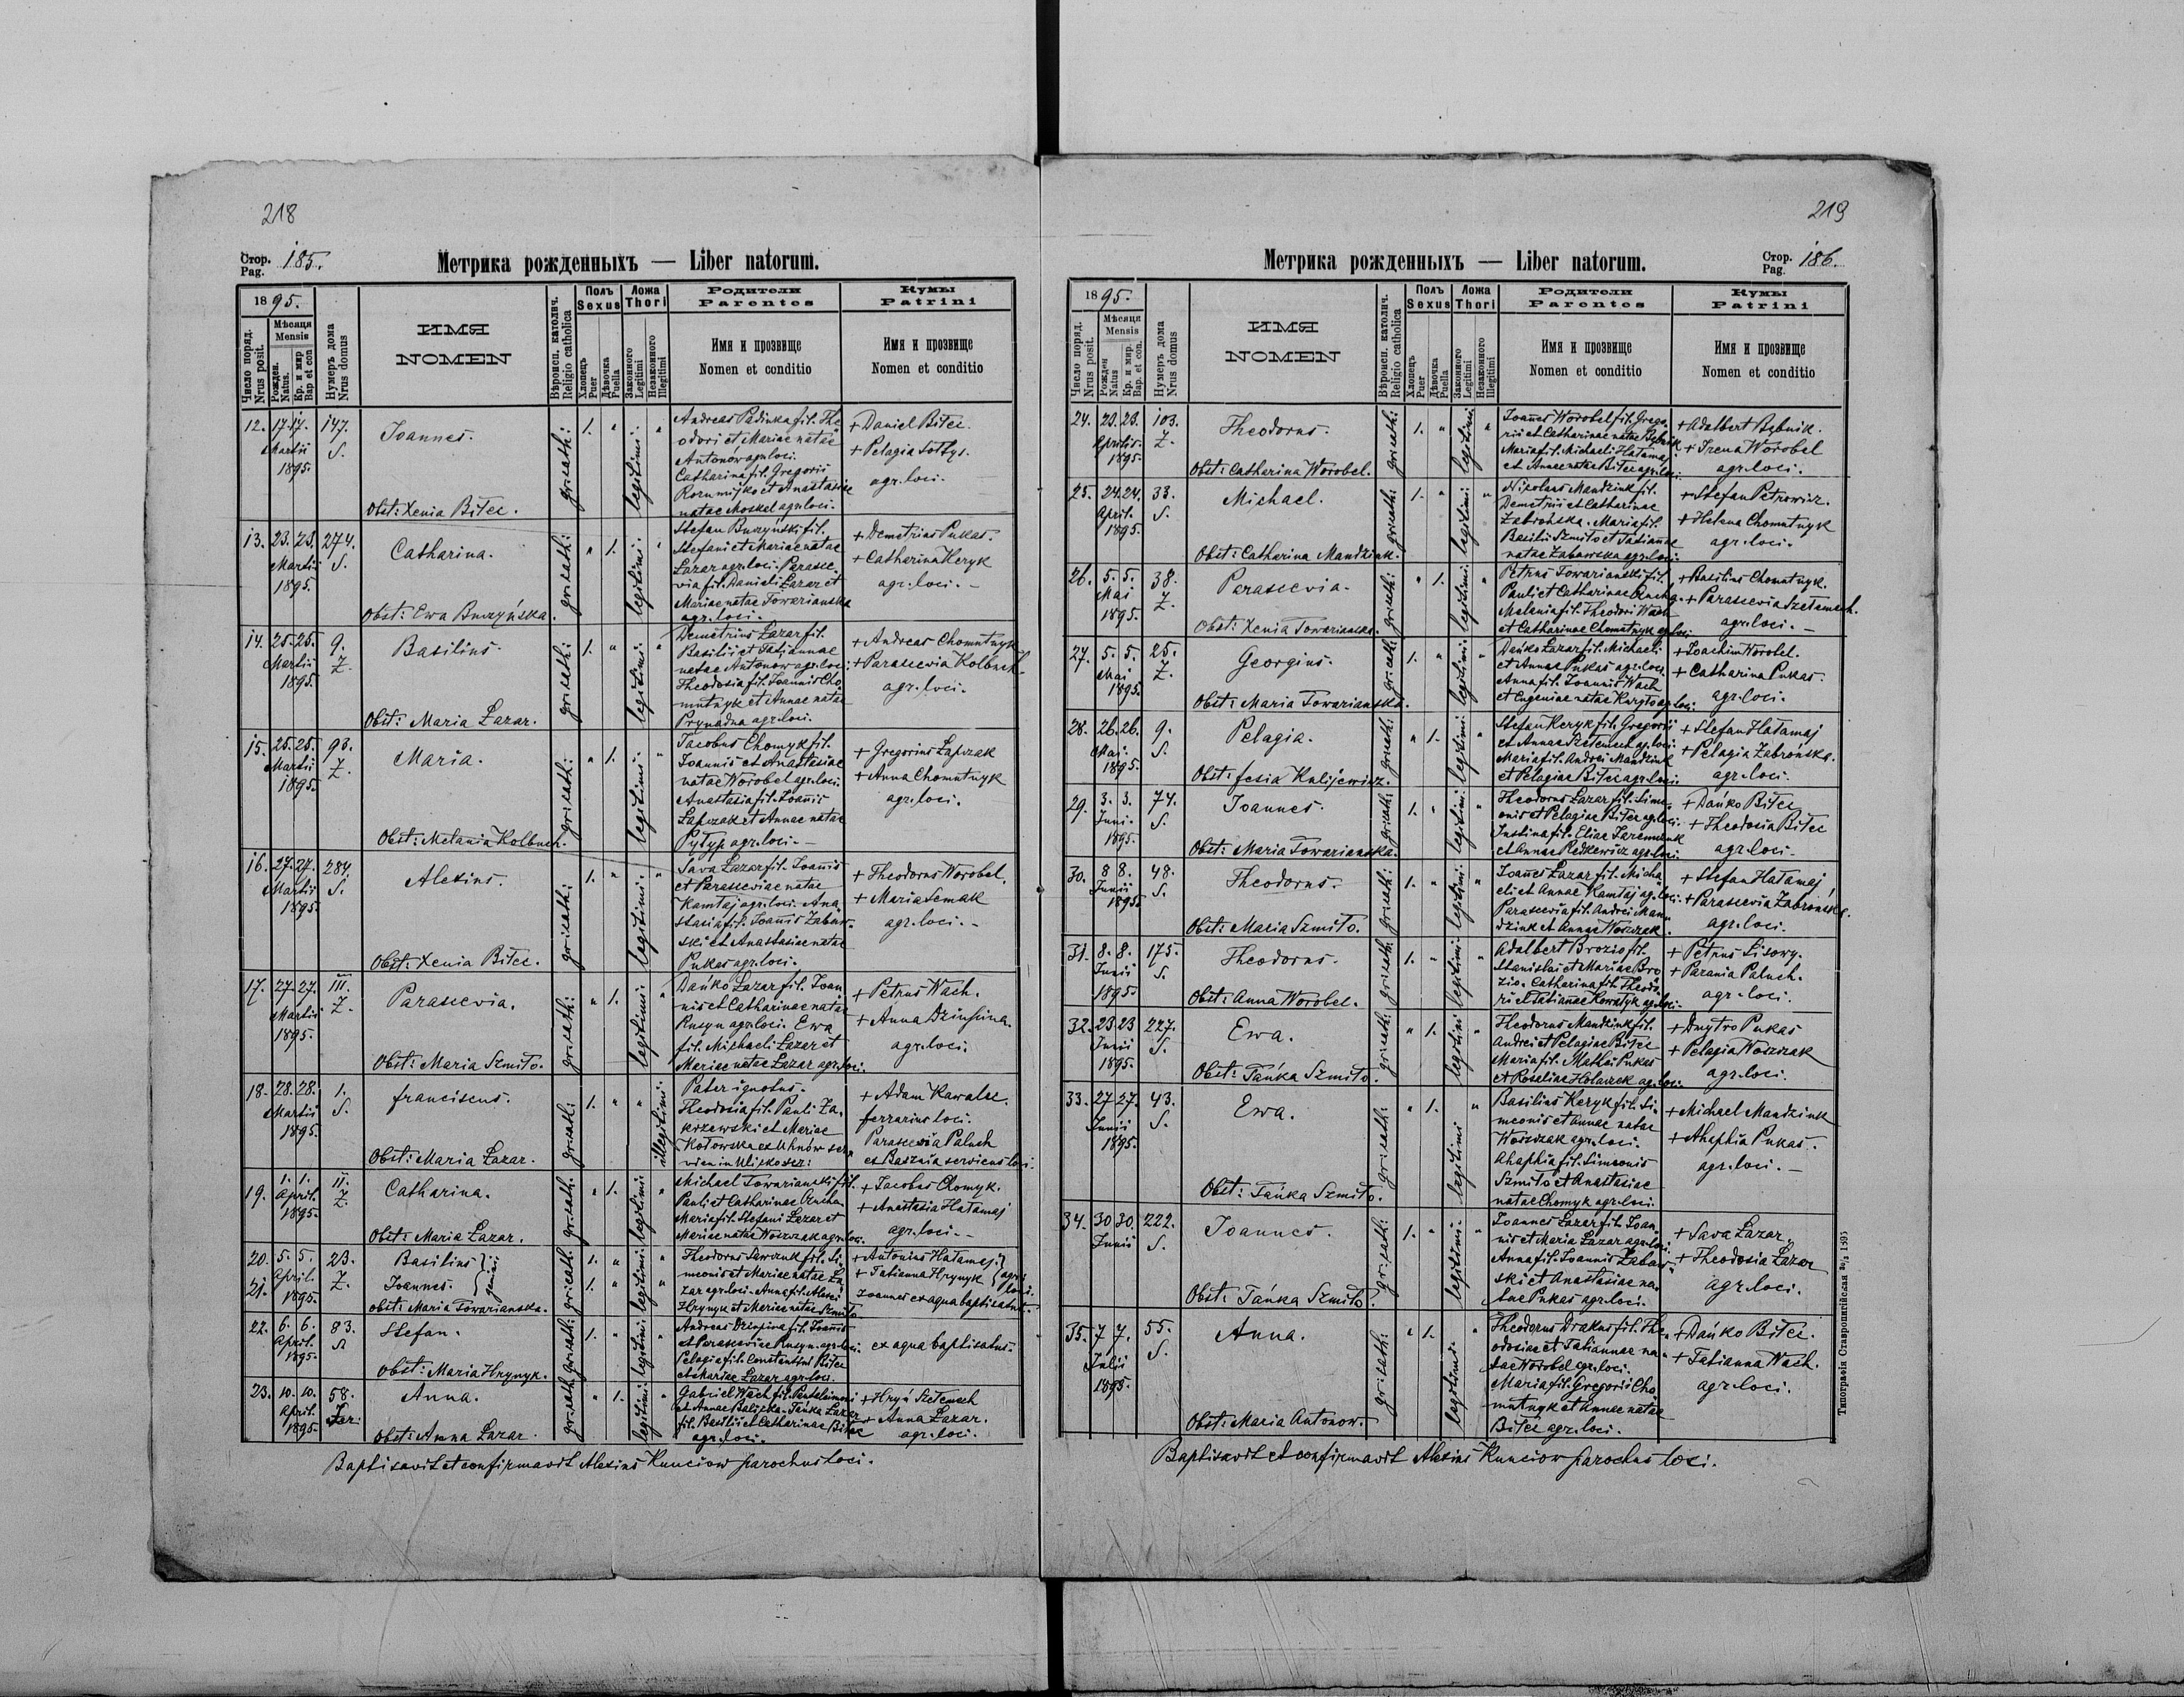 218
Стор.
Pag. 185.
Метрика рожденныхъ — Liber natorum.
1895.
Число поряд.
Nrus posit.
Мѣсяця
Mensis
Рожден.
Natus.
Кр. и мир
Bap et con
Нумеръ дома
Nrus domus
ИМЯ
NOMEN
Вѣроисп. католич.
Religio catholica
Полъ
Sexus
Хлопецъ
Puer
Дѣвочка
Puella
Ложа
Thori
Законного
Legitimi
Незаконного
Illegitimi
Родители
Parentes
Имя и прозвище
Nomen et conditio
Кумы
Patrini
Имя и прозвище
Nomen et conditio
12. 17. 17. Martii 1895. 147. S.
Joannes.
Obst: Xenia Bitec.
gr:cath: 1. " legitimi: "
Andreas Padinka fil. The
odori et Mariae natae
Antonów agr. loci.
Catharina fil. Gregorii
et Anastasiae
natae Moskal agr. loci.
+ Daniel Bitec.
+ Pelagia Sołtys.
agr. loci.
13. 23. 23. Martii 1895. 274. S.
Catharina.
Obst: Ewa Buczyńska.
gr:cath: " 1. legitimi: "
Stefan Buczyński fil.
Stefani et Mariae natae
Lazar agr. loci. Parasce-
via fil. Danieli Lazar et
Mariae natae Towarianska
agr. loci.
+ Demetrius Pukas.
+ Catharina Keryk
agr. loci. -
14. 25. 25. Martii 1895. 9. Z.
Basilius.
Obst: Maria Łazar.
gr:cath: 1. " legitimi: "
Demetrius Lazar fil.
Basilii et Tatiannae
natae Antonow agr. loci:
Theodosia fil. Joannis Cho
mutnyk et Annae natae
Prynadna agr. loci.
+ Andreas Chomutnyk
+ Parascewia Kolbuch.
agr. loci.
15. 25. 25. Martii 1895. 93. Z.
Maria.
Obst: Melania Kolbuch.
gr:cath: " 1. legitimi: "
Jacobus Chomyk fil.
Joannis et Anastasiae
natae Worobel agr. loci.
Anastasia fil. Joannis
Łapczak et Annae natae
Pytyp agr. loci. -
+ Gregorius Łapczak
+ Anna Chomutnyk
agr. loci.
16. 27. 27. Martii 1895. 284. S.
Alexius.
Obst: Xenia Bitec.
gr:cath: 1. " legitimi: "
Sava Lazar fil. Joannis
et Parasceviae natae
Kamtaj agr. loci. Ana
stasia fil. Joannis Zabaw-
ski et Anastasiae natae
Pukas agr. loci.
+ Theodorus Worobel.
+ Maria Semak
agr. loci. -
17. 27. 27. Martii 1895. III. Z.
Parascevia.
Obst: Maria Szmiło.
gr:cath: " 1. legitimi: "
Dańko Lazar fil. Joan
nis et Catharinae natae
Rusyn agr. loci. Ewa
fil. Michaeli Lazar et
Mariae natae Lazar agr. loci.
+ Petrus Wach.
+ Anna
agr. loci.
18. 28. 28. Martii 1895. 1. S.
Franciscus.
Obst: Maria Łazar.
gr:cath: 1. " " illegitimi:
Pater ignotus.
Theodosia fil. Pauli Za-
krzewski et Mariae
Kotowska ex Uhnów ser-
+ Adam Kawalec.
ferrarius loci.
Parascewia Paluch
ex Basznia serviens loci.
19. 1. 1. April. 1895. II. Z.
Catharina.
Obst: Maria Lazar.
gr:cath. " 1. legitimi: "
Michael Towarianski fil.
Pauli et Catharinae
Maria fil. Stefani Lazar et
Mariae natae Woszczak agr. loci.
+ Jacobus Chomyk.
+ Anastasia Hatamaj
agr. loci. -
20. 21. 5. 5. April. 1895. 23. Z.
Basilius
Joannes. } gemini
Obst: Maria Towarianska.
gr:cath. 1. " 1. " legitimi: "
Theodorus Sawczuk fil. Si-
meonis et Mariae natae La
zar agr. loci. Anna fil. Alexii
Hrynyk et Mariae natae Szmiło.
+ Antonius Hatamaj
+ Tatianna Hrynyk } agr. loci.
Joannes ex aqua baptisatus.
22. 6. 6. April. 1895. 83. S
Stefan.
Obst: Maria Hrynyk.
gr:cath: 1. " legitimi: "
Andreas fil. Joannis
et Parasceviae Rusyn. agr. loci.
Pelagia fil. Constantini Bitec
et Mariae Lazar agr. loci.
ex aqua baptisatus.
23. 10. 10. April. 1895. 58.
Anna.
Obst: Anna Lazar.
gr:cath. " 1. legitimi: "
Gabriel Wach fil. Pantaleimoni
et Annae Tańka Lazar
fil. Basilii et Catharinae Bitec
agr. loci.
+ Hryń Szetemech
+ Anna Łazar.
agr. loci.
Baptisavit et confirmavit Alexius Kunciow parochus loci.
219
Метрика рожденныхъ — Liber natorum.
Стор.
Pag. 186.
1895.
Число поряд.
Nrus posit.
Мѣсяця
Mensis
Рожден
Natus
Кр. и мир.
Bap. et con.
Нумеръ дома
Nrus domus
ИМЯ
NOMEN
Вѣроисп. католич.
Religio catholica
Полъ
Sexus
Хлопецъ
Puer
Дѣвочка
Puella
Ложа
Thori
Законного
Legitimi
Незаконного
Illegitimi
Родители
Parentes
Имя и прозвище
Nomen et conditio
Кумы
Patrini
Имя и прозвище
Nomen et conditio
24. 23. 23. Aprilis. 1895. 103. Z.
Theodorus.
Obst: Catharina Worobel.
gr:cath: 1. " legitimi "
Joannes Worobel fil. Grego-
rii et Catharinae natae Bębnik
Maria fil. Michaeli Hatamaj
et Annae natae Bitec agr. loci.
+ Adalbert Bębnik.
+ Irena Worobel
agr. loci.
25. 24. 24. April. 1895. 33. S.
Michael.
Obst: Catharina Mandziuk.
gr:cath: 1. " legitimi: "
Nikolaus Mandziuk fil.
Demetrii et Catharinae
Zabrońska. Maria fil.
Basilii Szmiło et Tatiannae
natae Zabawska agr. loci.
+ Stefan Petrowicz.
+ Helena Chomutnyk
agr. loci.
26. 5. 5. Mai 1895. 38. Z.
Parascevia.
Obst: Xenia Towarianska.
gr:cath: " 1. legitimi: "
Petrus Towarianski fil.
Pauli et Catharinae
Melania fil. Theodori Wach
et Catharinae Chomutnyk agr. loci.
+ Basilius Chomutnyk.
+ Parascevia Szetamech.
agr. loci. -
27. 5. 5. Mai 1895. 25. Z.
Georgius.
Obst: Maria Towarianska.
gr:cath: 1. " legitimi: "
Dańko Lazar fil. Michaeli
et Annae Pukas agr. loci.
Anna fil. Joannis Wach
et Eugeniae natae agr. loci.
+ Joachim Worobel.
+ Catharina Pukas.
agr. loci.
28. 26. 26. Mai. 1895. 9. S.
Pelagia.
Obst: Fesia Kulijewicz.
gr:cath: " 1. legitimi: "
Stefan Keryk fil. Gregorii
et Annae Szetemech agr. loci.
Maria fil. Andrei Mandziuk
et Pelagiae Bitec agr. loci.
+ Stefan Hatamaj
+ Pelagia Zabrońska.
agr. loci.
29. 3. 3. Juni. 1895. 74. S.
Joannes.
Obst: Maria Towarianska.
gr:cath: 1. " legitimi: "
Theodorus Lazar fil. Sime-
onis et Pelagiae Bitec agr. loci.
Justina fil. Eliae
et Annae Redkewicz agr. loci.
+ Dańko Bitec
+ Theodosia Bitec
agr. loci.
30. 8 8. Junii 1895 48. S.
Theodorus.
Obst: Maria Szmiło.
gr:cath: 1. " legitimi: "
Joannes Lazar fil. Micha
eli et Annae Kamtaj agr. loci.
Parascewia fil. Andrei Man-
dziuk et Annae Woszczak.
+ Stefan Hatamaj
+ Parascewia Zabrońska.
agr. loci.
31. 8. 8. Junii 1895 175. S.
Theodorus.
Obst: Anna Worobel.
gr:cath. 1. " legitimi: "
Adalbert Brozio fil.
Stanislai et Mariae Bro
zio. Catharina fil. Theodo-
ri et Tatiannae Kowatyk agr. loci.
+ Petrus Lisowy.
+ Parania Paluch.
agr. loci.
32. 23 23 Junii 1895. 227. S.
Ewa.
Obst: Tańka Szmiło.
gr:cath: " 1. legitimi "
Theodorus Mandziuk fil.
Andrei et Pelagiae Bitec
Maria fil. Mathei Pukas
et Rosaliae Holaczek agr. loci.
+ Dmytro Pukas
+ Pelagia Woszczak
agr. loci.
33. 27 27. Junii 1895. 43. S.
Ewa.
Obst: Tańka Szmiło.
gr:cath: " 1. legitimi "
Basilius Keryk fil. Si-
meonis et Annae natae
Woszczak agr. loci.
Ahaphia fil. Simeonis
Szmiło et Anastasiae
natae Chomyk agr. loci.
+ Michael Mandziuk
+ Ahaphia Pukas.
agr. loci. -
34. 30 30. Junii 222. S.
Joannes.
Obst: Tańka Szmiło.
gr:cath: 1. " legitimi: "
Joannes Lazar fil. Joan
nis et Maria Lazar agr. loci.
Anna fil. Joannis Zabaw-
ski et Anastasiae na-
tae Pukas agr. loci.
+ Sava Lazar.
+ Theodosia Lazar
agr. loci.
35. 7 7. Julii 1895. 55. S.
Anna.
Obst: Maria Antonow.
gr:cath: " 1. legitimi: "
Theodorus Drakus fil. The-
odosiae et Tatiannae na-
tae Worobel agr. loci.
Maria fil. Gregorii Cho-
mutnyk et Annae natae
Bitec agr. loci.
+ Dańko Bitec.
+ Tatianna Wach.
agr. loci.
Baptisavit et confirmavit Alexius Kunciow parochus loci.
Типографія Ставропигійская